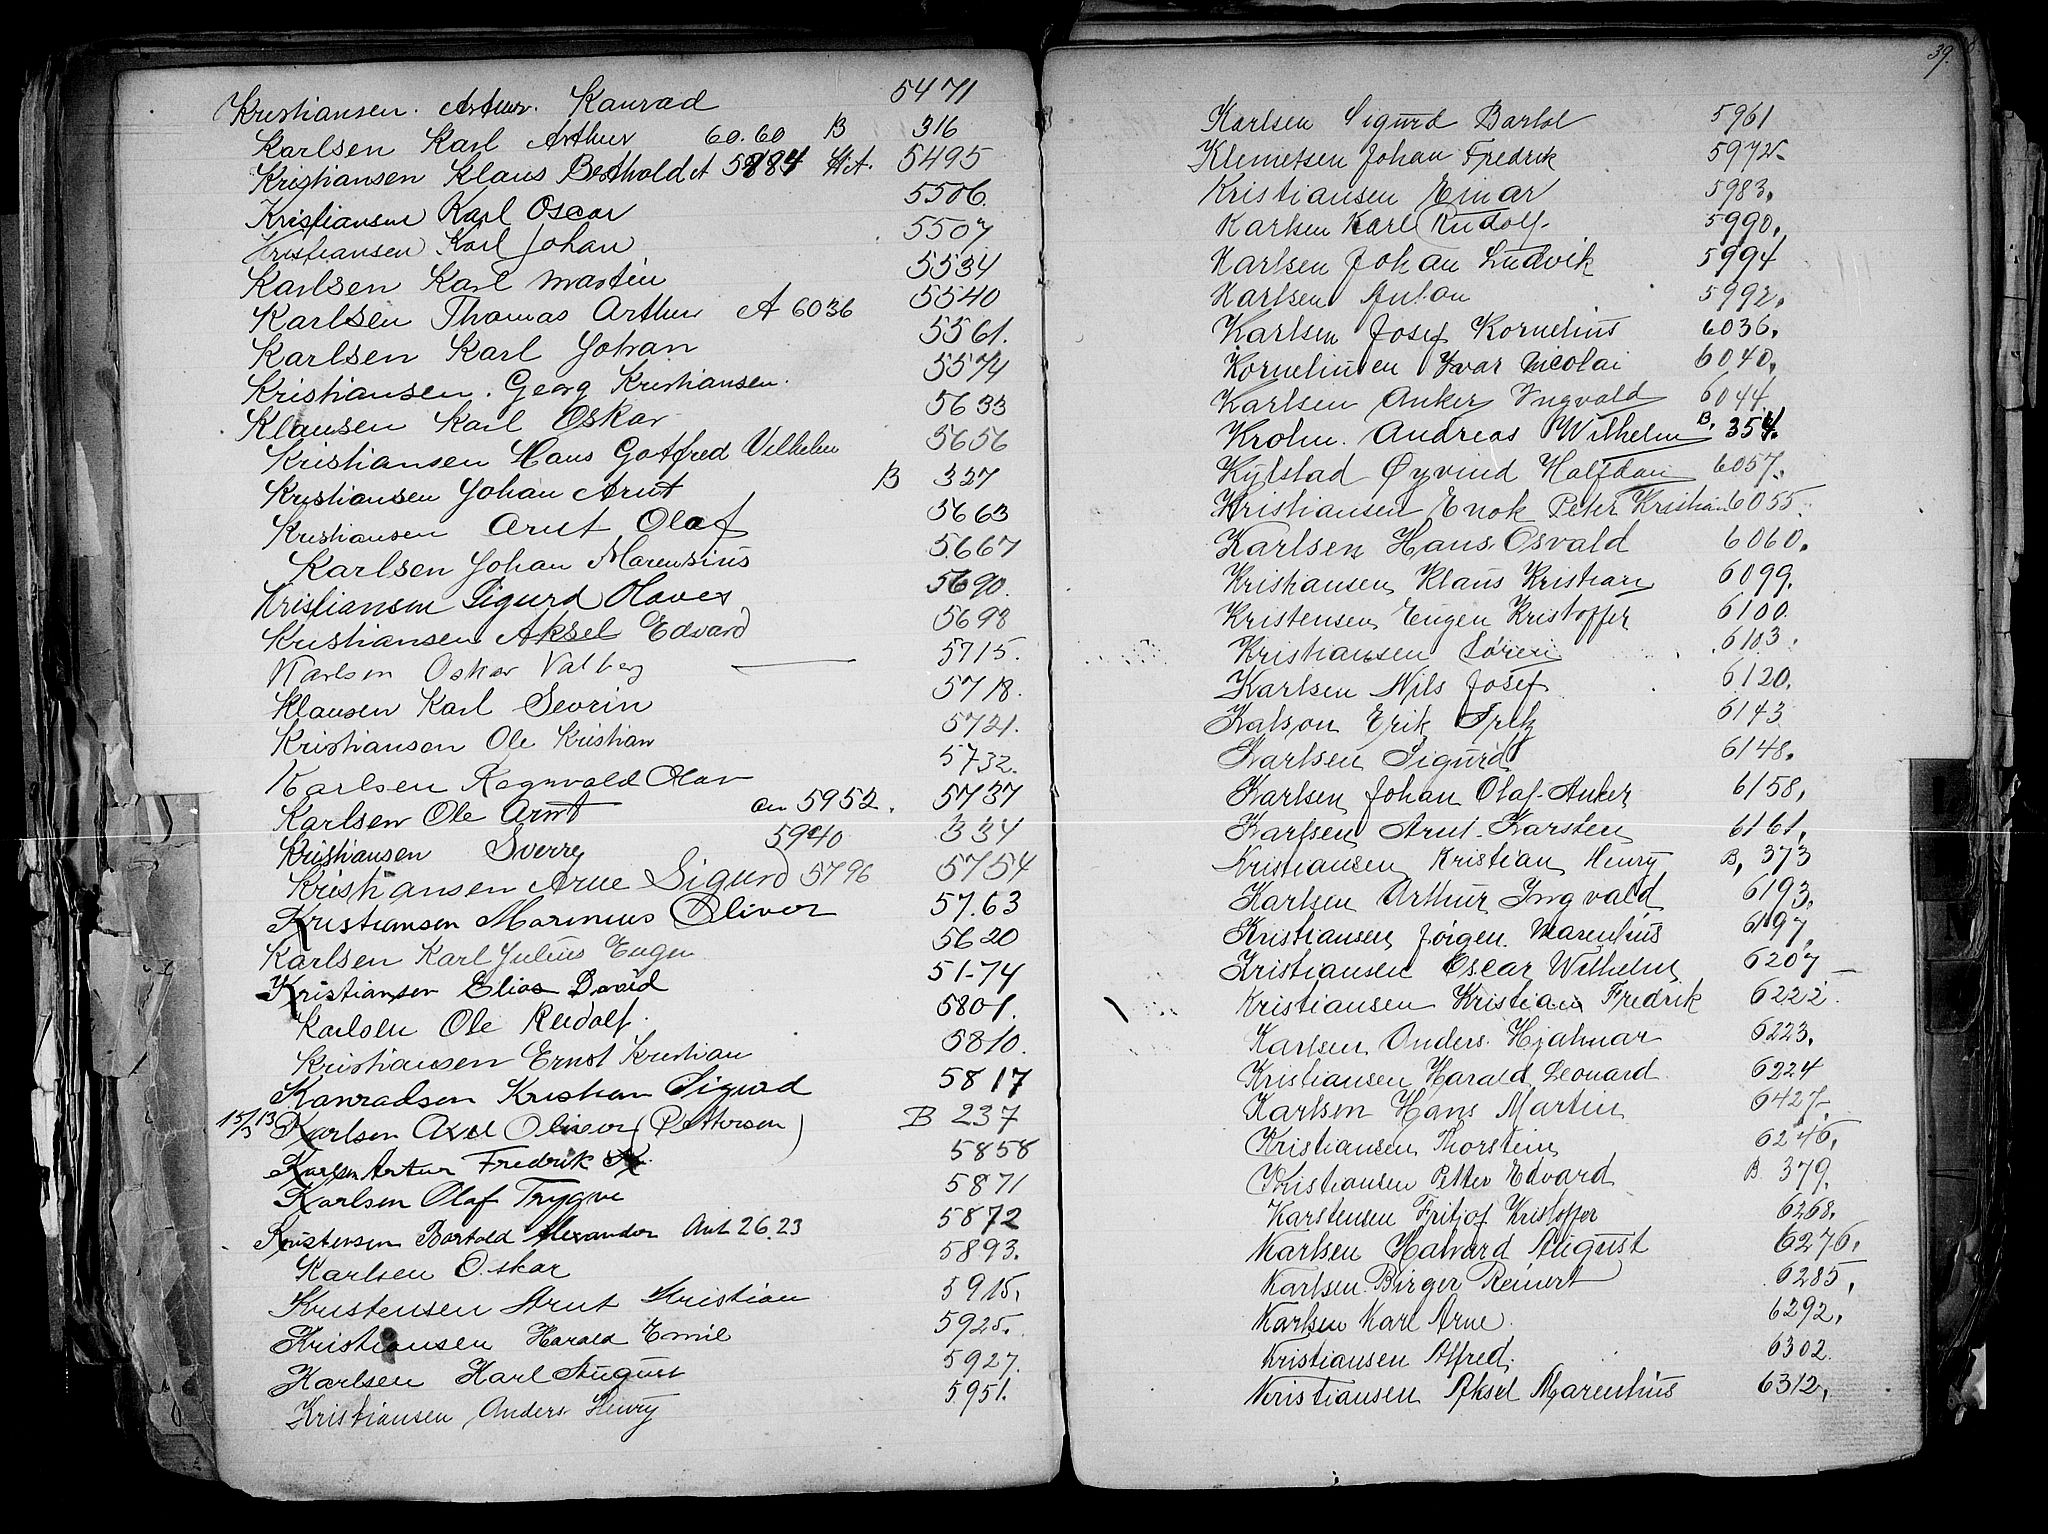 Kristiansen. Arthur. Konrad 5471
Karlsen Karl Arthur 60.60 B 316
Kristiansen Klaus Berthold A 5884 5495
Kristiansen Karl Oscar 5506.
Kristiansen Karl Johan 5507
Karlsen Karl Martin 5534
Karlsen Thomas Arthur A 6036 5540
Karlsen Karl Johan 5561.
Kristiansen. Georg Kristiansen. 5574
Klausen Karl Oskar 5633
Kristiansen Hans Gotfred Vilhelm 5656
Kristiansen Johan Arnt B 327
Kristiansen Arnt Olaf 5663
Karlsen Johan Marensius 5667
Kristiansen Sigurd Olaves 5690.
Kristiansen Aksel Edvard 5698
Karlsen Oskar Valberg — 5715.
Klausen Karl Sevrin 5718.
Kristiansen Ole Kristian 5721.
Karlsen Ragnvald Olav 5732.
Karlsen Ole Arnt an 5952. 5737
Kristiansen Sverre 5940 334
Kristiansen Arne Sigurd 5796 5754
Kristiansen Marinius Oliver 57.63
Karlsen Karl Julius Eugen 5620
Kristiansen Elias David 51-74
Karlsen Ole Rudolf. 5801.
Kristiansen Ernst Kristian 5810.
Konradsen Kristian Sigurd 5817
15/3 13 Karlsen Axel Oliver (Pettersen) B 237
Karlsen Artur Fredrik 5858
Karlsen Olaf Trygve 5871
Kristensen Bartold Alexander Ant 26.23 5872
Karlsen Oskar 5893.
Kristensen Arnt Kristian 5915.
Kristiansen Harald Emil 5925.
Karlsen Karl August 5927.
Kristiansen Anders Henry 5951.
39.
Karlsen Sigurd Bartol 5961
Klemetsen Johan Fredrik 5972.
Kristiansen Einar 5983.
Karlsen Karl Rudolf. 5990.
Karlsen Johan Ludvik 5994
Karlsen Anton 5992.
Karlsen Josef Kornelius 6036.
Korneliussen Ivar Nicolai 6040.
Karlsen Anker Ingvald 6044
Krohn. Andreas Wilhelm B. 354.
Kylstad Øyvind Halfdan 6057.
Kristiansen Enok Peter Kristian 6055.
Karlsen Hans Osvald 6060.
Kristiansen Klaus Kristian 6099.
Kristensen Eugen Kristoffer 6100.
Kristiansen Søren 6103.
Karlsen Nils Josef 6120.
Kalson Erik Fritz 6143
Karlsen Sigurd 6148.
Karlsen Johan Olaf Anker 6158.
Karlsen Arnt Karsten 6161.
Kristiansen Kristian Henry B. 373
Karlsen Arthur Ingvald 6193.
Kristiansen Jørgen. Marenhius 6197.
Kristiansen Oscar Wilhelm 6207 —
Kristiansen Kristian Fredrik 6222.
Karlsen Anders. Hjalmar 6223.
Kristiansen Harald Leonard. 6224
Karlsen Hans Martin 6427.
Kristiansen Thorstein 6246.
Kristiansen Petter Edvard B 379.
Karstensen Fritjof Kristoffer 6268.
Karlsen Halvard August 6276.
Karlsen Birger Reinert 6285.
Karlsen Karl Arne. 6292.
Kristiansen Alfred. 6302.
Kristiansen Aksel Marenhius 6312.